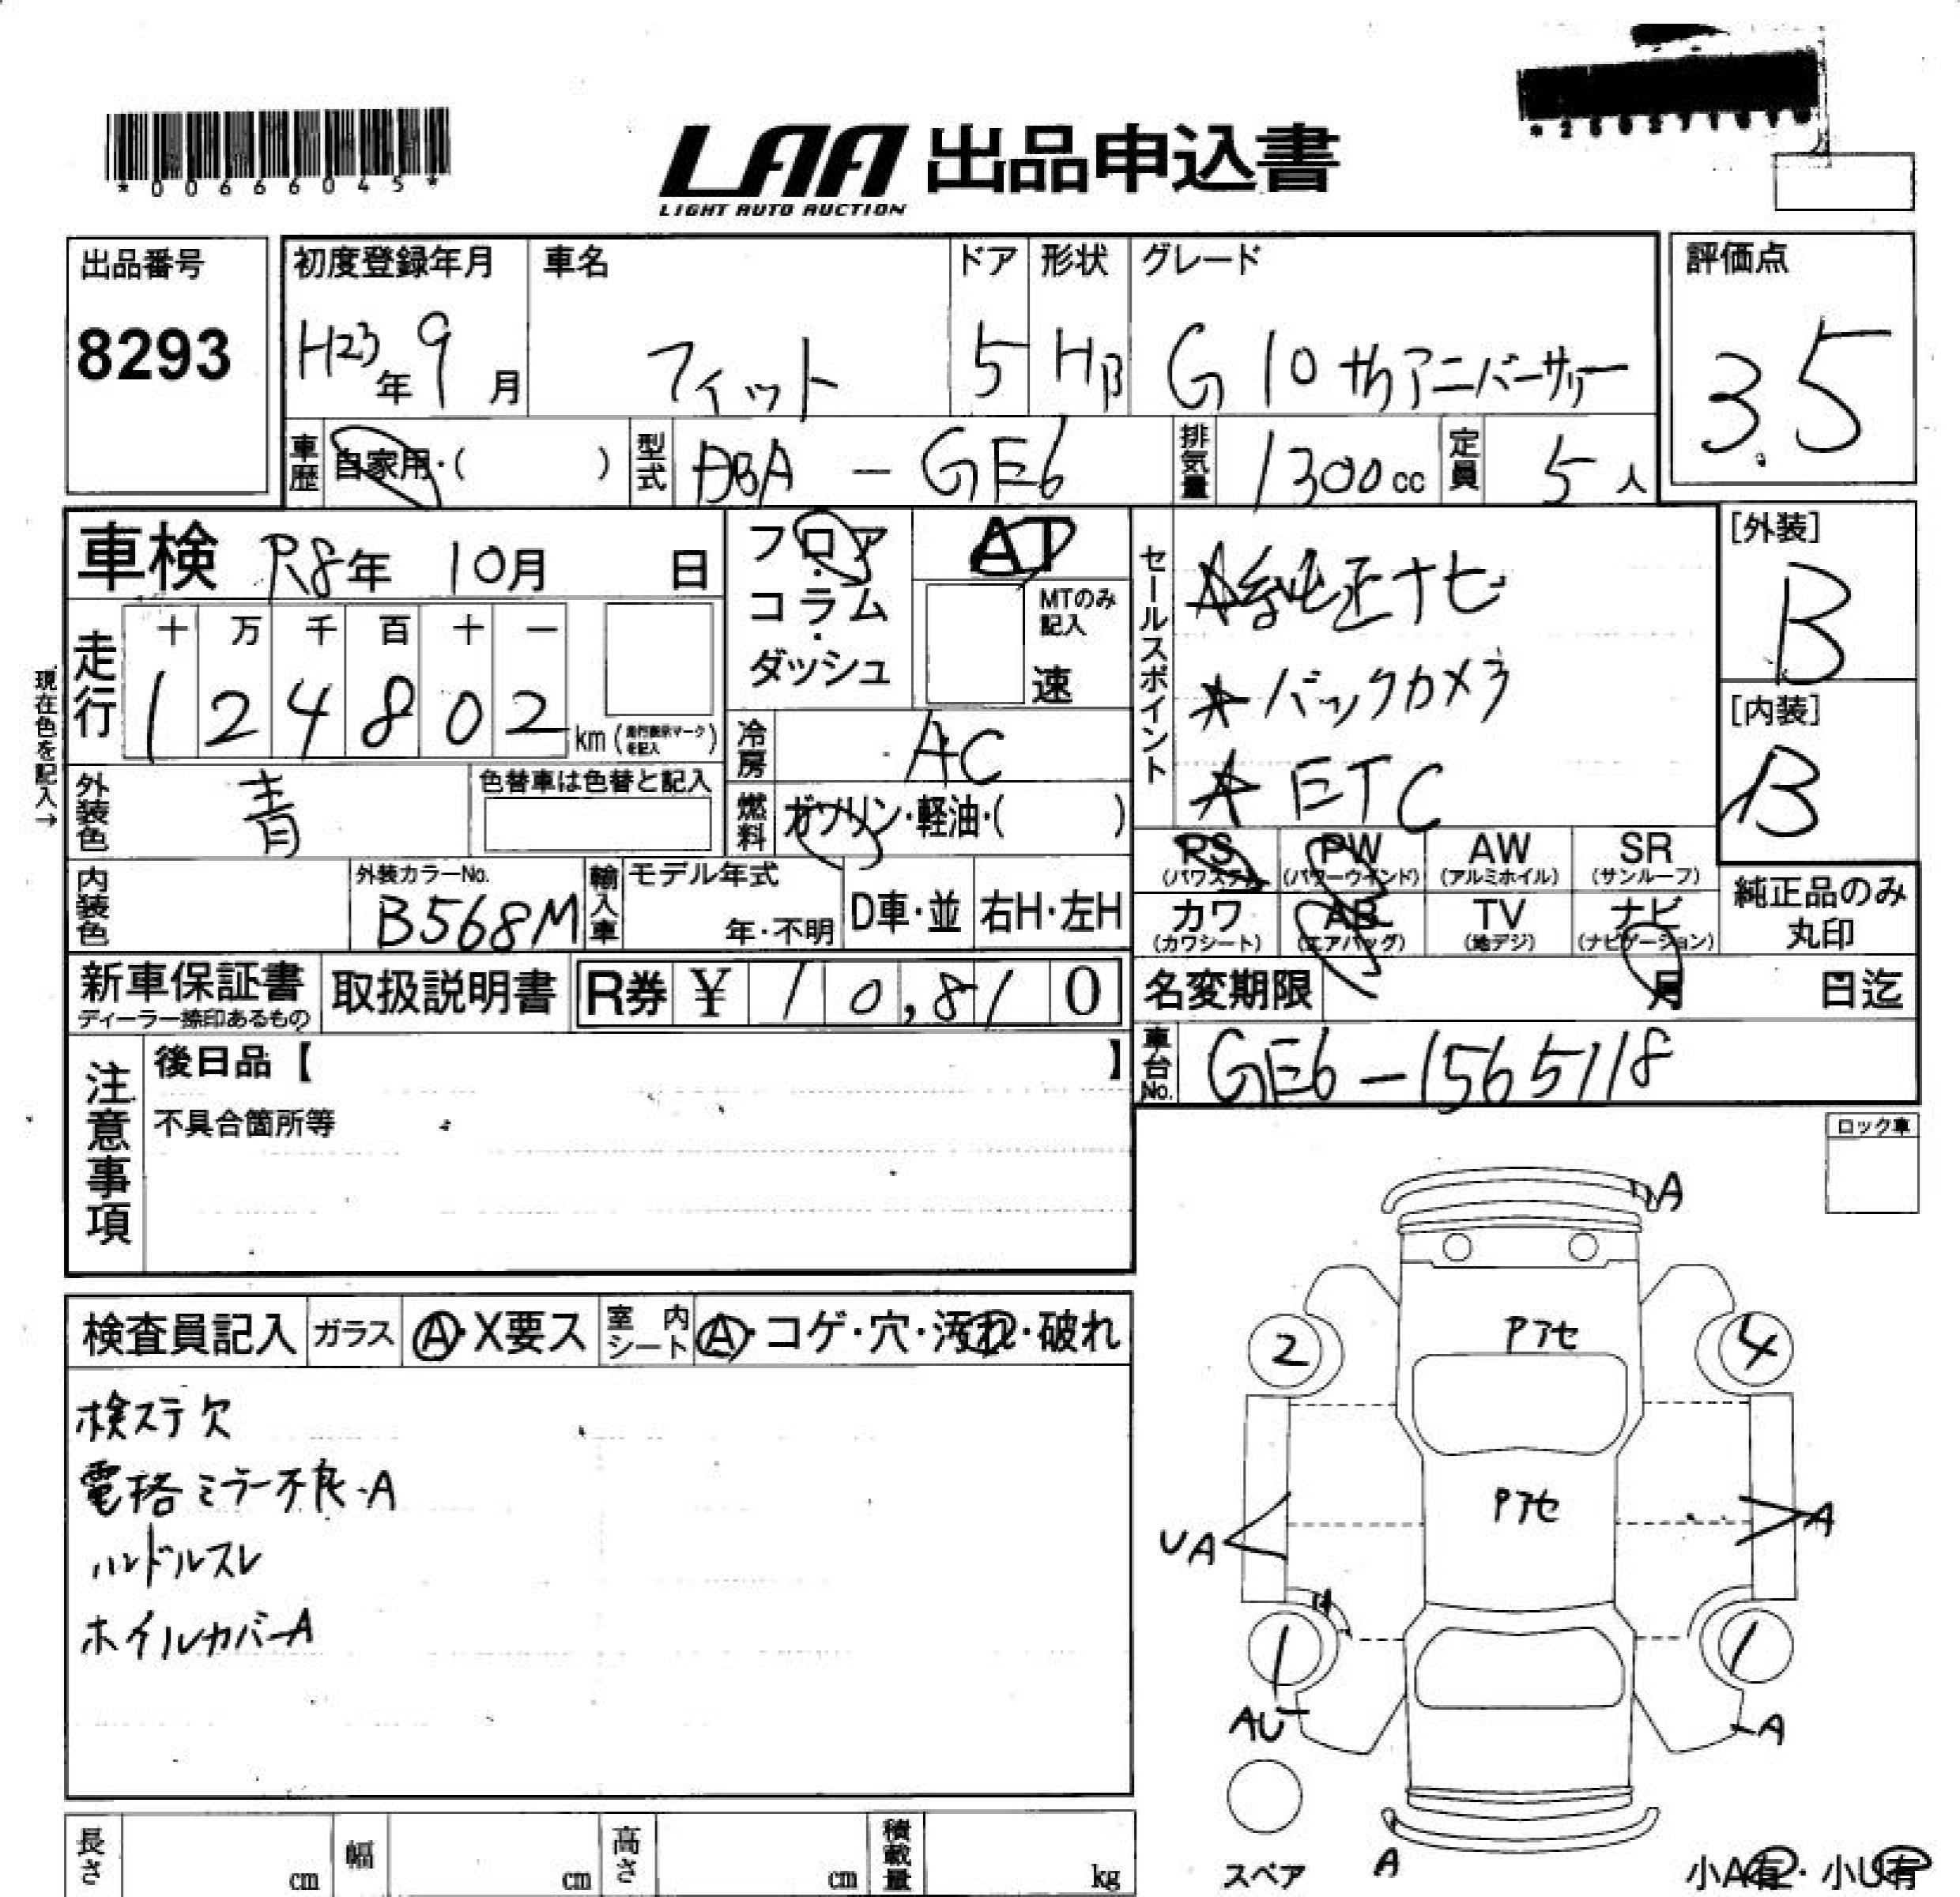 *00666045*
LAA 出品申込書
LIGHT AUTO AUCTION
出品番号
8293
初度登録年月
H23年9月
車名
フィット
ドア
5
形状
HB
グレード
G 10thアニバーサリー
評価点
3.5
車歴 自家用・( )
型式 DBA - GE6
排気量 1300cc
定員 5人
車検 R8年 10月 日
フロア・コラム・ダッシュ
AT
MTのみ記入
速
セールスポイント
★純正ナビ
★バックカメラ
★ETC
[外装]
B
[内装]
B
現在色を記入→
走行
十 万 千 百 十 一
1 2 4 8 0 2 km (走行表示マークを記入)
冷房 AC
外装色 青
色替車は色替と記入
燃料 ガソリン・軽油・( )
PS (パワステ)
PW (パワーウインド)
AW (アルミホイル)
SR (サンルーフ)
カワ (カワシート)
AB (エアバッグ)
TV (地デジ)
ナビ (ナビゲーション)
純正品のみ丸印
内装色
外装カラーNo.
B568M
輸入車
モデル年式
年・不明
D車・並
右H・左H
新車保証書
ディーラー捺印あるもの
取扱説明書
R券 ¥ 10,810
名変期限 月 日迄
注意事項
後日品【 】
不具合箇所等
車台No. GE6-1565118
ロック車
検査員記入
ガラス Ⓐ・X要ス
室内シート Ⓐ・コゲ・穴・汚れ・破れ
検ステ欠
電格ミラー不良・A
ハンドルスレ
ホイルカバーA
A
Pアセ
2
4
Pアセ
UA
A
1
1
AU
A
スペア
A
小A有・小U有
長さ cm
幅 cm
高さ cm
積載量 kg